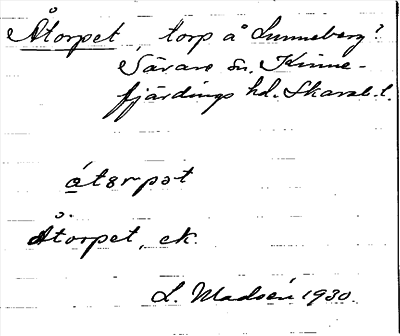 Åtorpet, torp å Lunneberg?
Särare sn. Kinne-
fjärdings hd. Skarab. l.
åtɜrpət
Åtorpet, ek.
L. Madsén 1930.